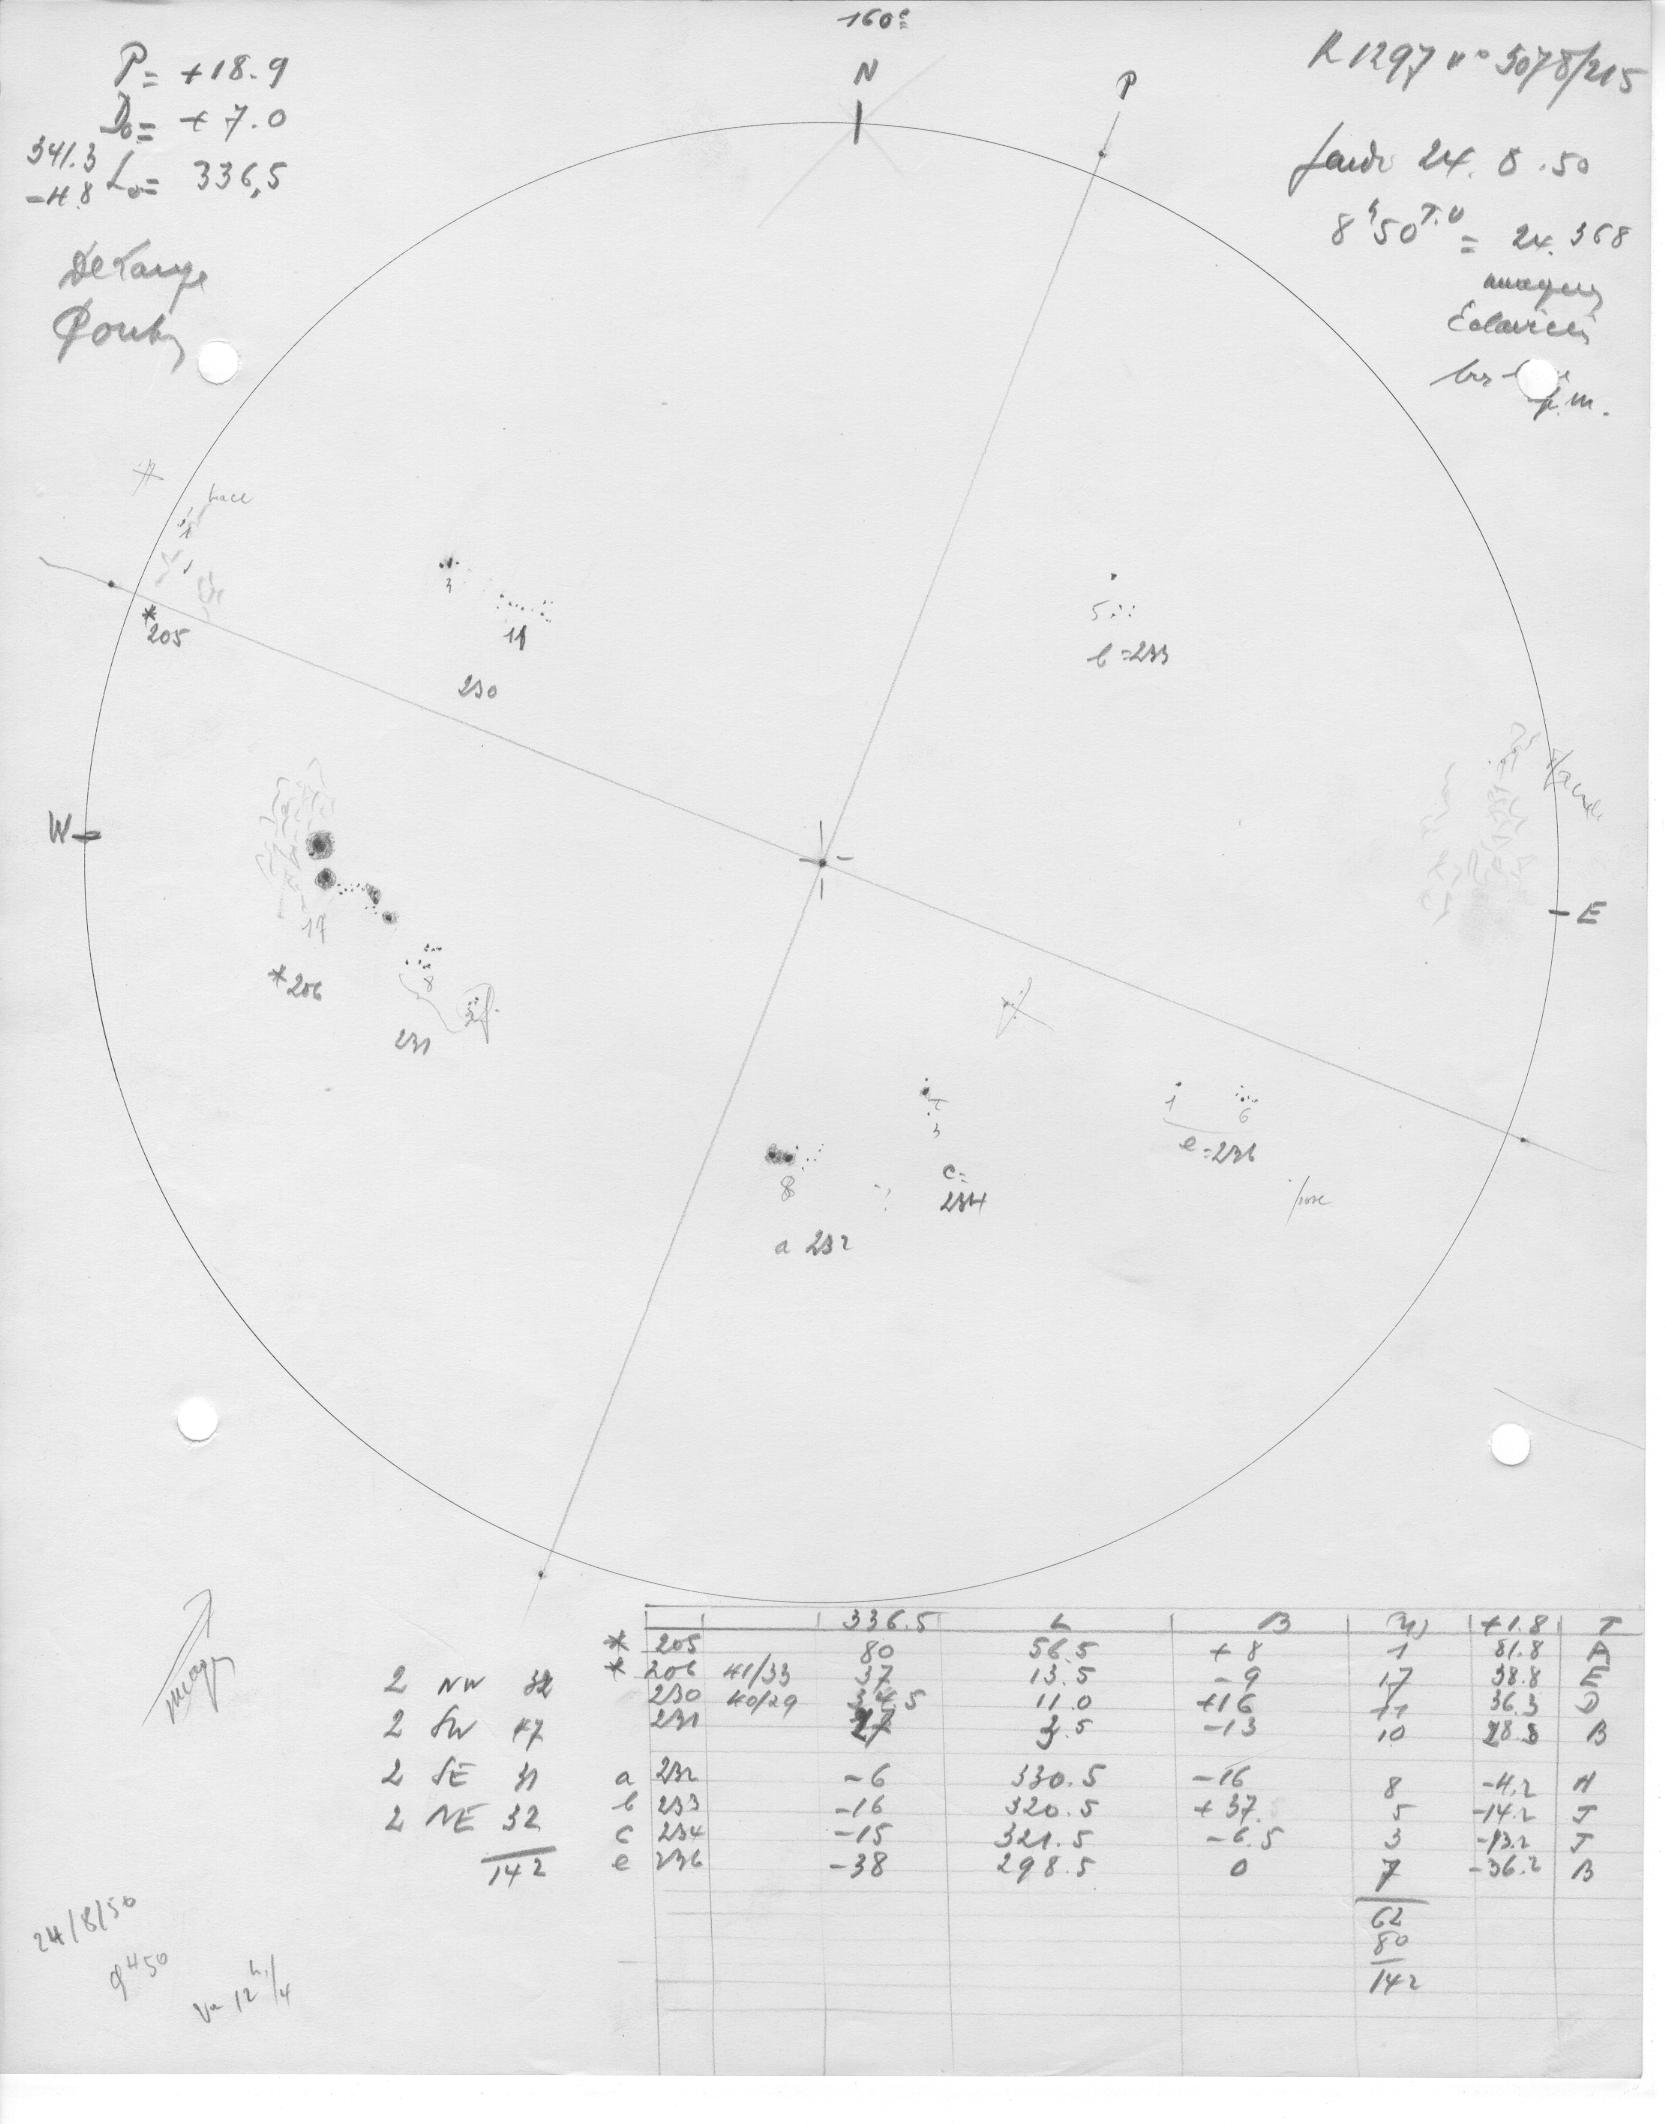 160e
N
P
P= +18.9
D0= +7.0
341.3
-4.8 L0= 336,5
R1297 no 3078/215
Jeudi 24.8.50
8h50 T.U = 24.368
nuageux
Eclaircies
f.m.
trace
*205
3
11
230
5
b=233
W
E
17
*206
8
231
1
6
e=236
3
c=
234
8
a 232
nuages
336.5 L B +1.8 T
* 205 80 56.5 +8 1 81.8 A
* 206 41/33 37 13.5 -9 17 38.8 E
230 40/29 34.5 11.0 +16 11 36.3 D
231 27 3.5 -13 10 28.8 B
a 232 -6 330.5 -16 8 -4.2 H
b 233 -16 320.5 +37 5 -14.2 J
c 234 -15 321.5 -6.5 3 -13.2 J
e 236 -38 298.5 0 7 -36.2 B
62
80
142
2 NW 32
2 SW 47
2 SE 31
2 NE 32
142
24/8/50
9h50
12h 1/4